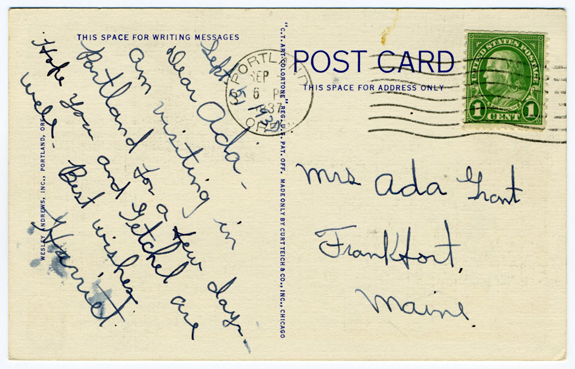 THIS SPACE FOR WRITING MESSAGES
Sept. 5, 1937
Dear Ada-
Am visiting in
Portland for a few days-
Hope you and Getchel are
well- Best wishes
Harriet
WESLEY ANDREWS, INC., PORTLAND, ORE.
"C.T. ART-COLORTONE" REG. U.S. PAT. OFF. MADE ONLY BY CURT TEICH & CO., INC., CHICAGO
PORTLAND
SEP
6 P
1937
ORE
POST CARD
THIS SPACE FOR ADDRESS ONLY
UNITED STATES POSTAGE
1 CENT 1
Mrs Ada Grant
Frankfort,
Maine.